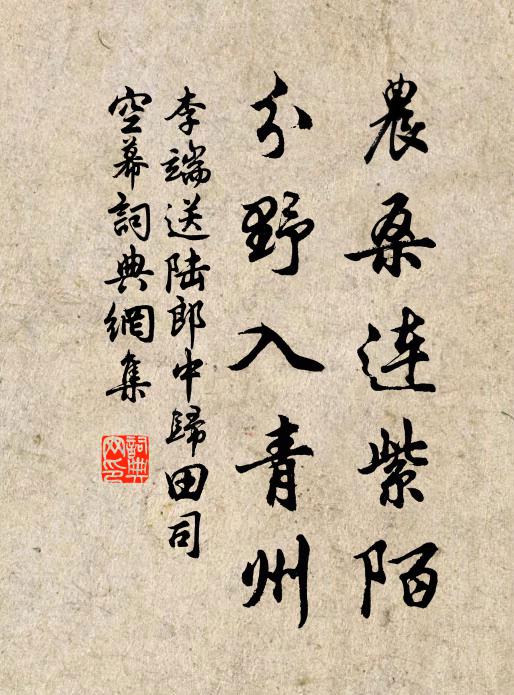 農桑连紫陌
分野入青州
李端送陆郎中歸田司
空幕詞典網集